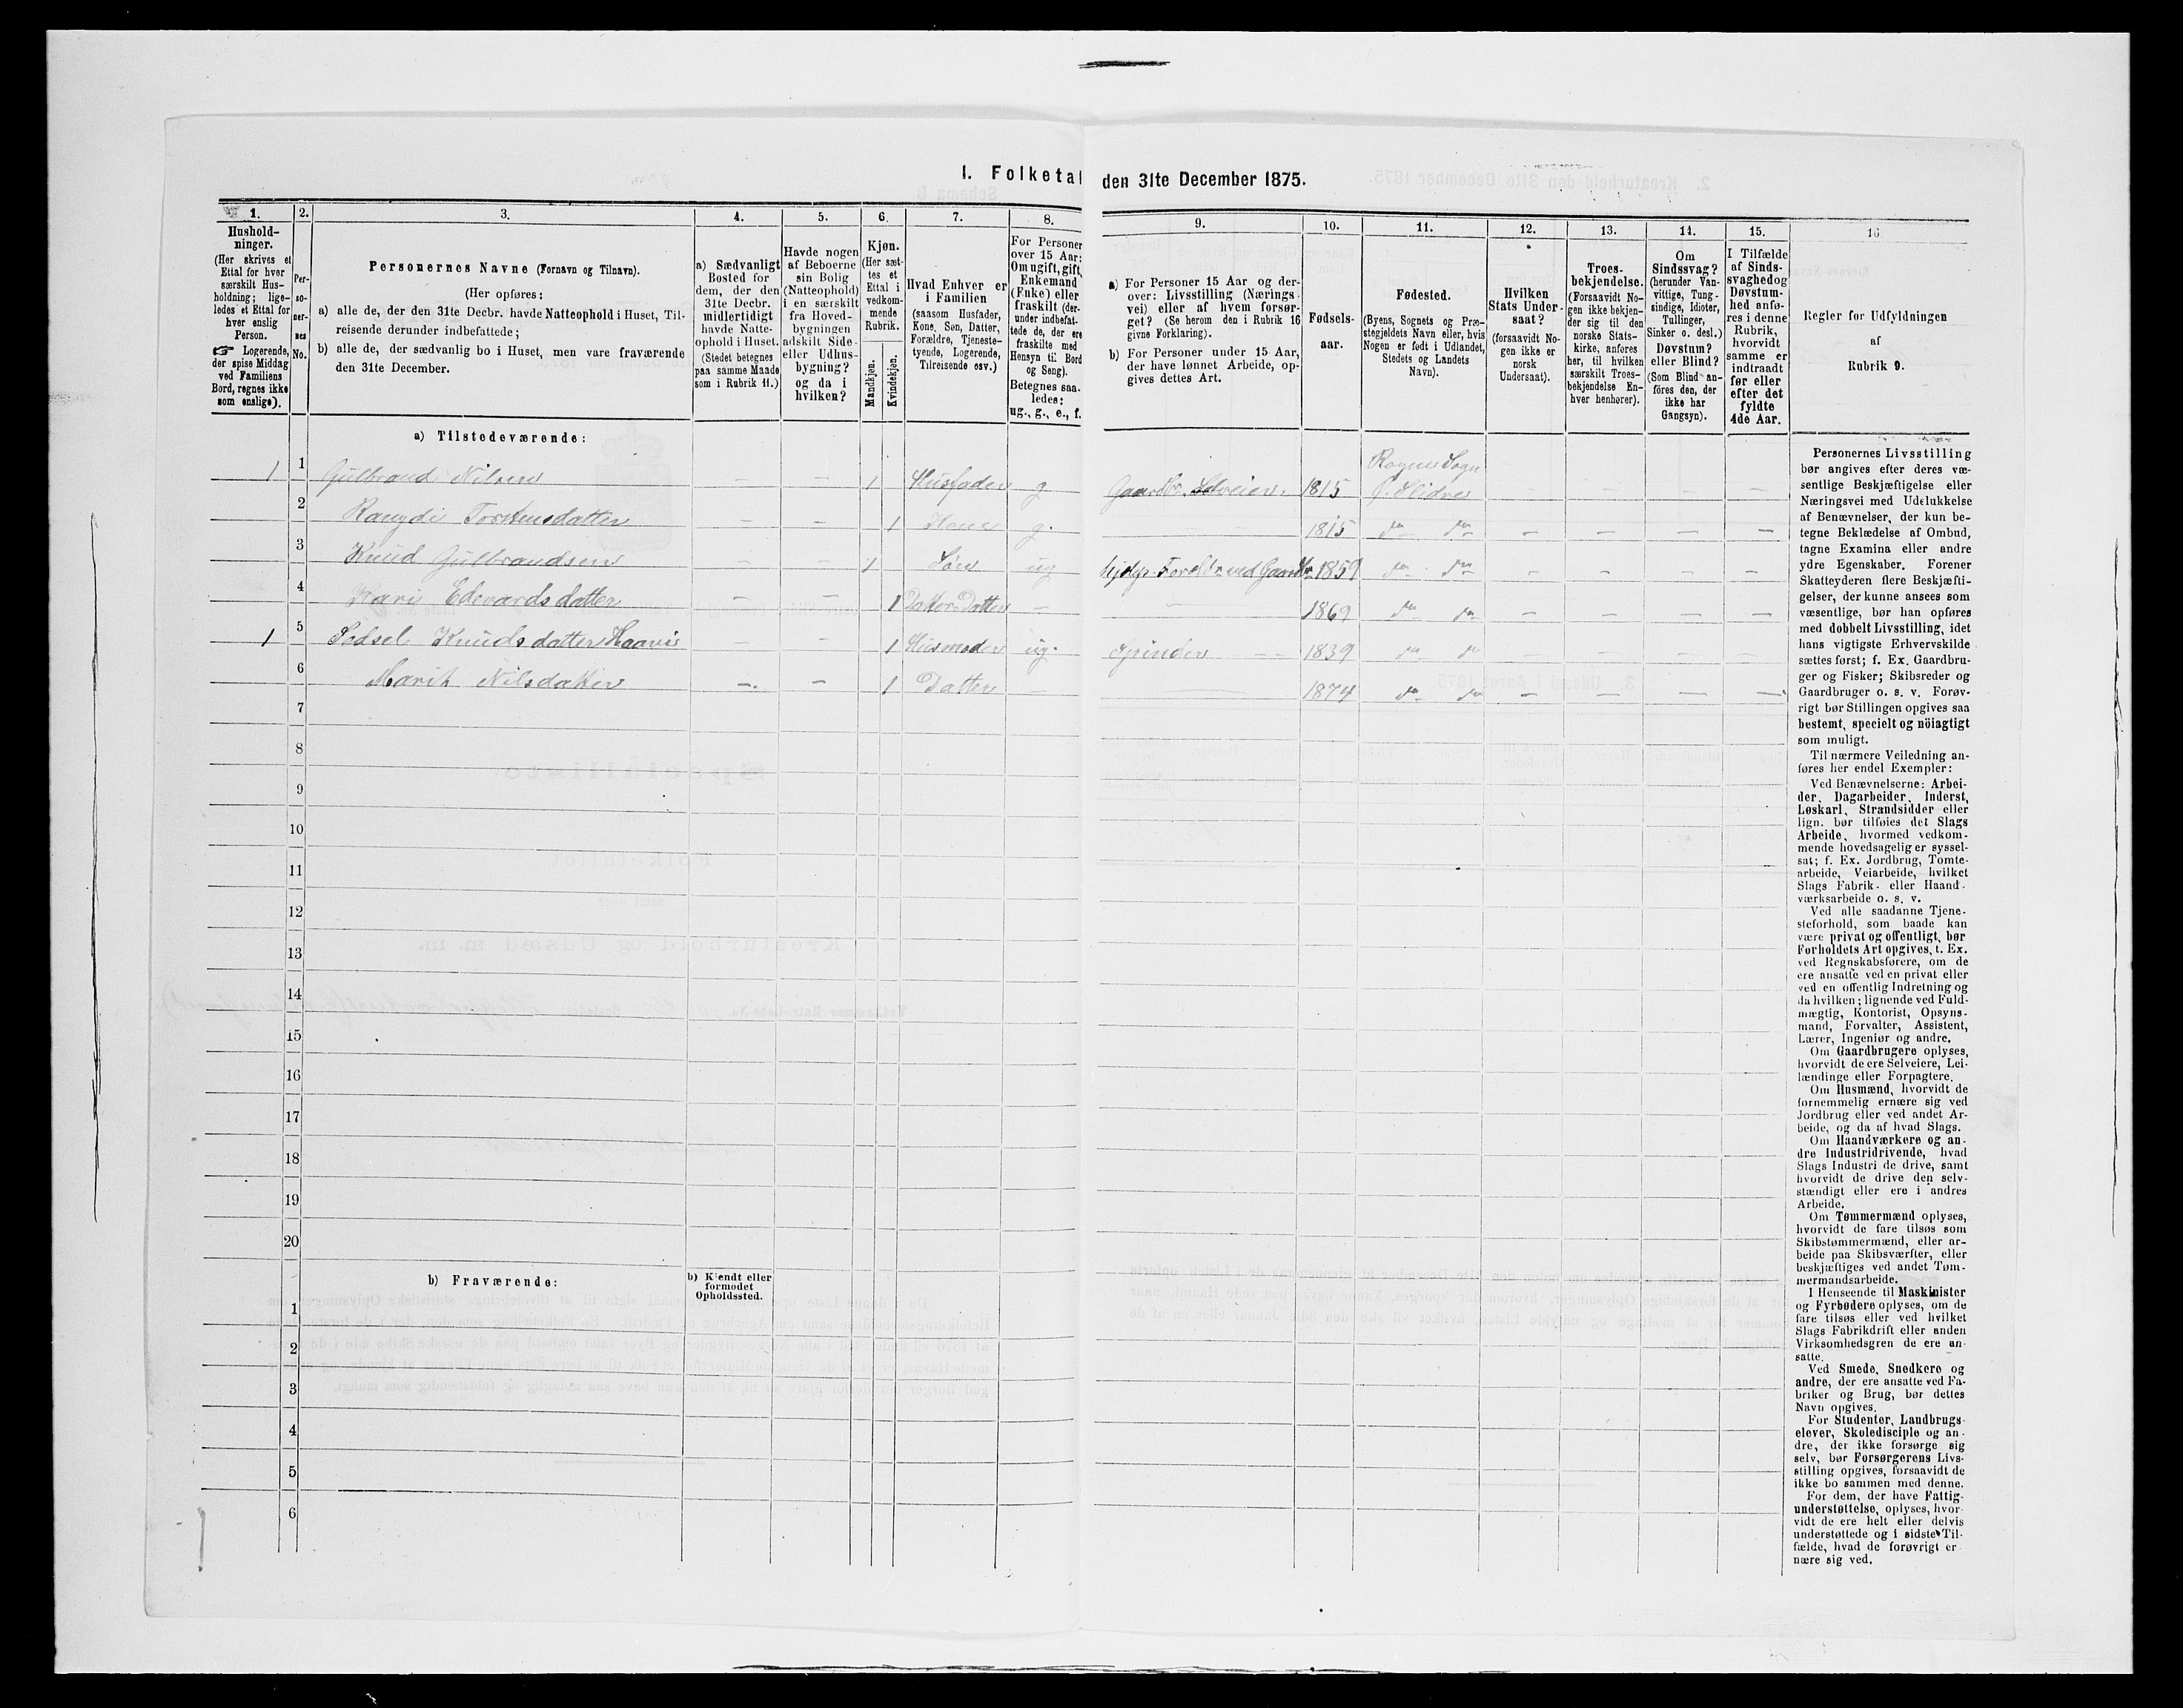 I. Folketal den 31te December 1875.
1.
Hushold-
ninger.
(Her skrives et
Ettal for hver
særskilt Hus-
holdning; lige-
ledes et Ettal for
hver enslig
Person.
☞ Logerende,
der spise Middag
ved Familiens
Bord, regnes ikke
som enslige).
2.
Per-
so-
ner-
nes
No.
3.
Personernes Navne (Fornavn og Tilnavn).
(Her opføres:
a) alle de, der den 31te Decbr. havde Natteophold i Huset, Til-
reisende derunder indbefattede;
b) alle de, der sædvanlig bo i Huset, men vare fraværende
den 31te December.
4.
a) Sædvanligt
Bosted for
dem, der den
31te Decbr.
midlertidigt
havde Natte-
ophold i Huset.
(Stedet betegnes
paa samme Maade
som i Rubrik 11.)
5.
Havde nogen
af Beboerne
sin Bolig
(Natteophold)
i en særskilt
fra Hoved-
bygningen
adskilt Side-
eller Udhus-
bygning?
og da i
hvilken?
6.
Kjøn.
(Her sæt-
tes et
Ettal i
vedkom-
mende
Rubrik.
Mandkjøn.
Kvindekjøn.
7.
Hvad Enhver er
i Familien
(saasom Husfader,
Kone, Søn, Datter,
Forældre, Tjeneste-
tyende, Logerende,
Tilreisende osv.)
8.
For Personer
over 15 Aar:
Om ugift, gift,
Enkemand
(Enke) eller
fraskilt (der-
under indbefat-
tede de, der ere
fraskilte med
Hensyn til Bord
og Seng).
Betegnes saa-
ledes:
ug., g., e., f.
9.
a) For Personer 15 Aar og der-
over: Livsstilling (Nærings-
vei) eller af hvem forsør-
get? (Se herom den i Rubrik 16
givne Forklaring).
b) For Personer under 15 Aar,
der have lønnet Arbeide, op-
gives dettes Art.
10.
Fødsels-
aar.
11.
Fødested.
(Byens, Sognets og Præ-
stegjeldets Navn eller, hvis
Nogen er født i Udlandet,
Stedets og Landets
Navn).
12.
Hvilken
Stats Under-
saat?
(forsaavidt No-
gen ikke er
norsk
Undersaat).
13.
Troes-
bekjendelse.
(Forsaavidt No-
gen ikke bekjen-
der sig til den
norske Stats-
kirke, anføres
her, til hvilken
særskilt Troes-
bekjendelse En-
hver henhører).
14.
Om
Sindssvag?
(herunder Van-
vittige, Tung-
sindige, Idioter,
Tullinger,
Sinker o. desl.)
Døvstum?
eller Blind?
(Som Blind an-
föres den, der
ikke har
Gangsyn).
15.
I Tilfælde
af Sinds-
svaghed og
Døvstum-
hed anfø-
res i denne
Rubrik,
hvorvidt
samme er
indtraadt
før eller
efter det
fyldte
4de Aar.
16
Regler for Udfyldningen
af
Rubrik 9.
a) Tilstedeværende:
1 1 Gulbrand Nilsen – – 1 Husfader g Gaardbr. Selveier. 1815 Rogne Sogn Ø. Slidre
2 Rangdi Torstensdatter – – 1 Kone g. 1815 do do
3 Knud Gulbrandsen – – 1 Søn ug 1859 do do
4 Kari Edvardsdatter – – 1 Datter-Datter – 1869 do do
1 5 Sidsel Knudsdatter Haavi – – 1 Husmoder ug. Spinder 1839 do do
6 Marit Nilsdatter – – 1 Datter – 1874 do do
7
8
9
10
11
12
13
14
15
16
17
18
19
20
b) Fraværende:
b) Kjendt eller
formodet
Opholdssted.
1
2
3
4
5
6
Personernes Livsstilling
bør angives efter deres væ-
sentlige Beskjæftigelse eller
Næringsvei med Udelukkelse
af Benævnelser, der kun be-
tegne Beklædelse af Ombud,
tagne Examina eller andre
ydre Egenskaber. Forener
Skatteyderen flere Beskjæfti-
gelser, der kunne ansees som
væsentlige, bør han opføres
med dobbelt Livsstilling, idet
hans vigtigste Erhvervskilde
sættes først; f. Ex. Gaardbru-
ger og Fisker; Skibsreder og
Gaardbruger o. s. v. Forøv-
rigt bør Stillingen opgives saa
bestemt, specielt og nöiagtigt
som muligt.
Til nærmere Veiledning an-
føres her endel Exempler:
Ved Benævnelserne: Arbei-
der, Dagarbeider, Inderst,
Løskarl, Strandsidder eller
lign. bør tilføies det Slags
Arbeide, hvormed vedkom-
mende hovedsagelig er syssel-
sat; f. Ex. Jordbrug, Tomte-
arbeide, Veiarbeide, hvilket
Slags Fabrik- eller Haand-
værksarbeide o. s. v.
Ved alle saadanne Tjene-
steforhold, som baade kan
være privat og offentligt, bør
Forholdets Art opgives, t. Ex.
ved Regnskabsførere, om de
ere ansatte ved en privat eller
ved en offentlig Indretning og
da hvilken; lignende ved Fuld-
mægtig, Kontorist, Opsyns-
mand, Forvalter, Assistent,
Lærer, Ingeniør og andre.
Om Gaardbrugere oplyses,
hvorvidt de ere Selveiere, Lei-
lændinge eller Forpagtere.
Om Husmænd, hvorvidt de
fornemmelig ernære sig ved
Jordbrug eller ved andet Ar-
beide, og da af hvad Slags.
Om Haandværkere og an-
dre Industridrivende, hvad
Slags Industri de drive, samt
hvorvidt de drive den selv-
stændigt eller ere i andres
Arbeide.
Om Tømmermænd oplyses,
hvorvidt de fare tilsøs som
Skibstømmermænd, eller ar-
beide paa Skibsværfter, eller
beskjæftiges ved andet Tøm-
mermandsarbeide.
I Henseende til Maskinister
og Fyrbødere oplyses, om de
fare tilsøs eller ved hvilket
Slags Fabrikdrift eller anden
Virksomhedsgren de ere an-
satte.
Ved Smede, Snedkere og
andre, der ere ansatte ved Fa-
briker og Brug, bør dettes
Navn opgives.
For Studenter, Landbrugs-
elever, Skoledisciple og an-
dre, der ikke forsørge sig
selv, bør Forsørgerens Livs-
stilling opgives, forsaavidt de
ikke bo sammen med denne.
For dem, der have Fattig-
understøttelse, oplyses, hvor-
vidt de ere helt eller delvis
understøttede og i sidste Til-
fælde, hvad de forøvrigt er-
nære sig ved.